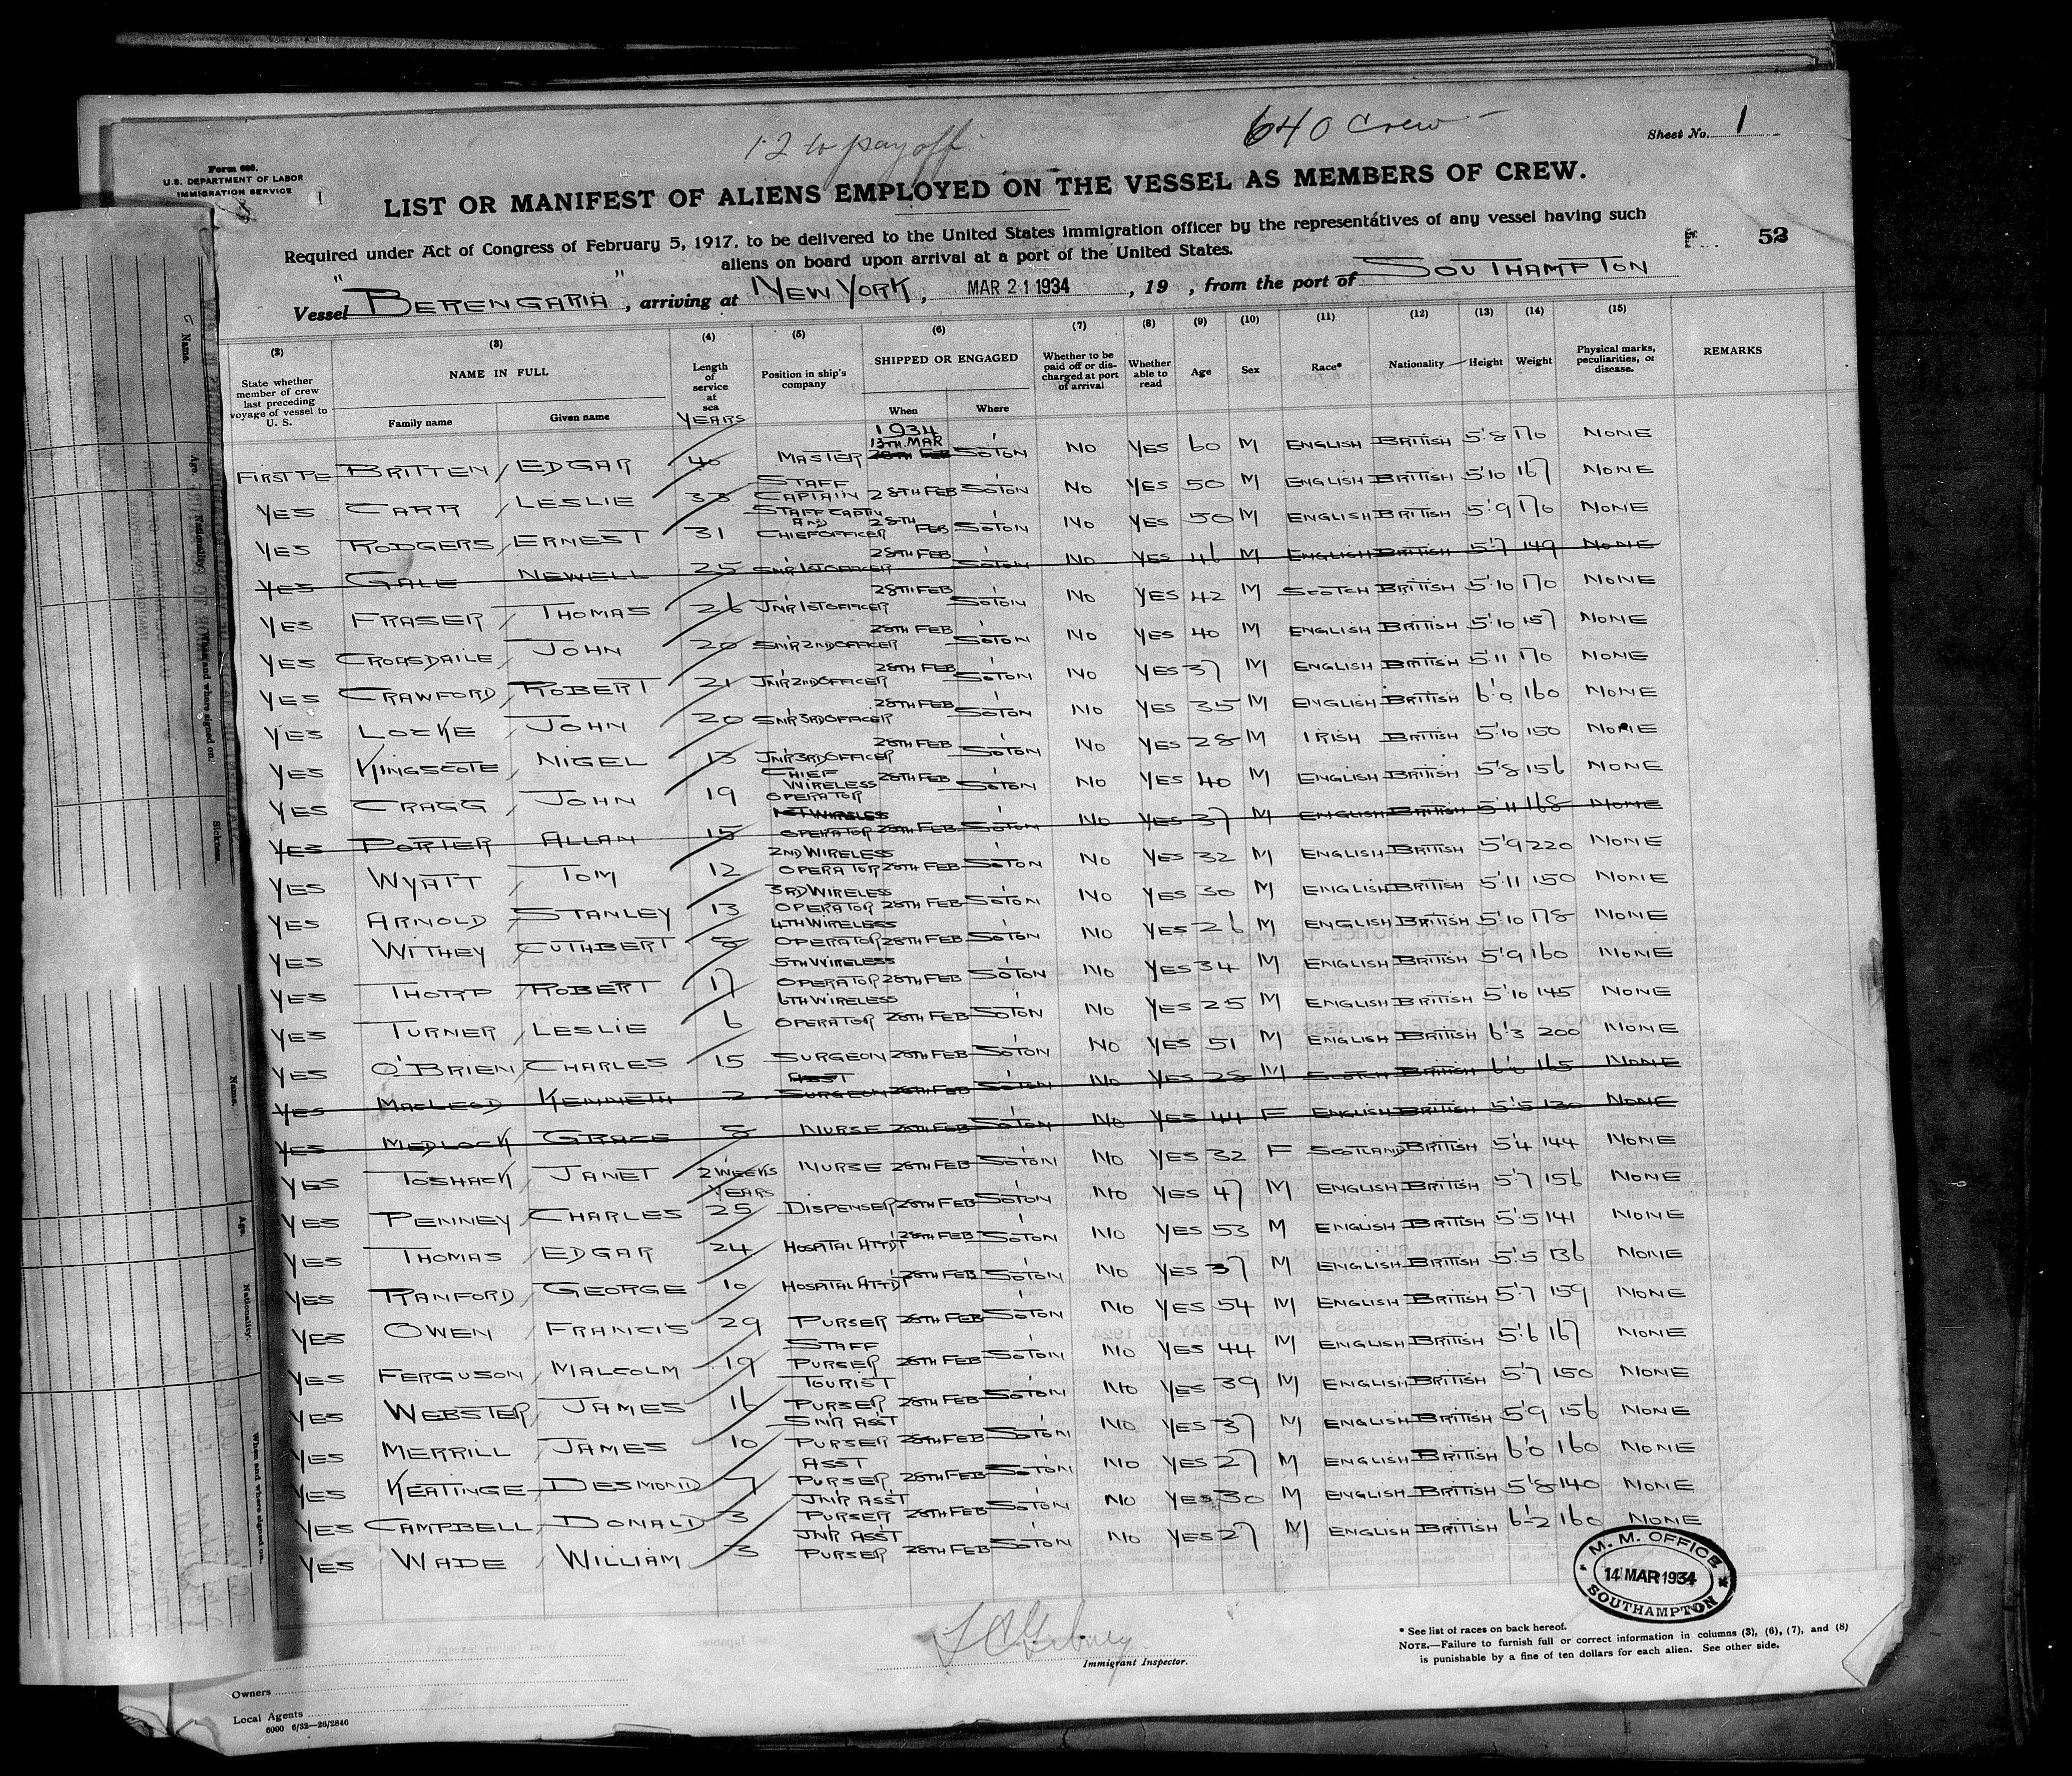 640 Crew
12 to payoff
Sheet No. 1
Form 680.
U.S. DEPARTMENT OF LABOR
IMMIGRATION SERVICE
LIST OR MANIFEST OF ALIENS EMPLOYED ON THE VESSEL AS MEMBERS OF CREW.
Required under Act of Congress of February 5, 1917, to be delivered to the United States immigration officer by the representatives of any vessel having such
aliens on board upon arrival at a port of the United States.
52
Vessel "BERENGARIA", arriving at NEW YORK, MAR 21 1934, 19 , from the port of SOUTHAMPTON
(2) (3) (4) (5) (6) (7) (8) (9) (10) (11) (12) (13) (14) (15)
State whether member of crew last preceding voyage of vessel to U. S. NAME IN FULL Family name Given name Length of service at sea YEARS Position in ship's company SHIPPED OR ENGAGED When Where Whether to be paid off or discharged at port of arrival Whether able to read Age Sex Race* Nationality Height Weight Physical marks, peculiarities, or disease. REMARKS
1934
FIRST BRITTEN EDGAR 40 MASTER 13TH MAR 28TH FEB SOTON NO YES 60 M ENGLISH BRITISH 5'8 170 NONE
YES CARR LESLIE 33 STAFF CAPTAIN 28TH FEB SOTON NO YES 50 M ENGLISH BRITISH 5'10 167 NONE
YES RODGERS ERNEST 31 STAFF CAPTIN AND CHIEF OFFICER 28TH FEB SOTON NO YES 50 M ENGLISH BRITISH 5'9 170 NONE
YES GALE NEWELL 25 SNR 1ST OFFICER 28TH FEB SOTON NO YES 46 M ENGLISH BRITISH 5'7 149 NONE
YES FRASER THOMAS 26 JNR 1ST OFFICER 28TH FEB SOTON NO YES 42 M SCOTCH BRITISH 5'10 170 NONE
YES CROASDAILE JOHN 20 SNR 2ND OFFICER 28TH FEB SOTON NO YES 40 M ENGLISH BRITISH 5'10 157 NONE
YES CRAWFORD ROBERT 21 JNR 2ND OFFICER 28TH FEB SOTON NO YES 37 M ENGLISH BRITISH 5'11 170 NONE
YES LOCKE JOHN 20 SNR 3RD OFFICER 28TH FEB SOTON NO YES 35 M ENGLISH BRITISH 6'0 160 NONE
YES KINGSCOTE NIGEL 13 JNR 3RD OFFICER 28TH FEB SOTON NO YES 28 M IRISH BRITISH 5'10 150 NONE
YES CRAGG JOHN 19 CHIEF WIRELESS OPERATOR 28TH FEB SOTON NO YES 40 M ENGLISH BRITISH 5'8 156 NONE
YES PORTER ALLAN 15 1ST WIRELESS OPERATOR 28TH FEB SOTON NO YES 37 M ENGLISH BRITISH 5'11 168 NONE
YES WYATT TOM 12 2ND WIRELESS OPERATOR 28TH FEB SOTON NO YES 32 M ENGLISH BRITISH 5'9 220 NONE
YES ARNOLD STANLEY 13 3RD WIRELESS OPERATOR 28TH FEB SOTON NO YES 30 M ENGLISH BRITISH 5'11 150 NONE
YES WITHEY CUTHBERT 8 4TH WIRELESS OPERATOR 28TH FEB SOTON NO YES 26 M ENGLISH BRITISH 5'10 178 NONE
YES THORP ROBERT 17 5TH WIRELESS OPERATOR 28TH FEB SOTON NO YES 34 M ENGLISH BRITISH 5'9 160 NONE
YES TURNER LESLIE 6 6TH WIRELESS OPERATOR 28TH FEB SOTON NO YES 25 M ENGLISH BRITISH 5'10 145 NONE
YES O'BRIEN CHARLES 15 SURGEON 28TH FEB SOTON NO YES 51 M ENGLISH BRITISH 6'3 200 NONE
YES MACLEOD KENNETH 2 ASST SURGEON 28TH FEB SOTON NO YES 28 M SCOTCH BRITISH 6'0 165 NONE
YES MEDLOCK GRACE 8 NURSE 28TH FEB SOTON NO YES 44 F ENGLISH BRITISH 5'5 130 NONE
YES TOSHACK JANET 2 WEEKS NURSE 28TH FEB SOTON NO YES 32 F SCOTLAND BRITISH 5'4 144 NONE
YES PENNEY CHARLES YEARS 25 DISPENSER 28TH FEB SOTON NO YES 47 M ENGLISH BRITISH 5'7 156 NONE
YES THOMAS EDGAR 24 HOSPITAL ATTDT 28TH FEB SOTON NO YES 53 M ENGLISH BRITISH 5'5 141 NONE
YES RANFORD GEORGE 10 HOSPITAL ATTDT 28TH FEB SOTON NO YES 37 M ENGLISH BRITISH 5'5 136 NONE
YES OWEN FRANCIS 29 PURSER 28TH FEB SOTON NO YES 54 M ENGLISH BRITISH 5'7 159 NONE
YES FERGUSON MALCOLM 19 STAFF PURSER 28TH FEB SOTON NO YES 44 M ENGLISH BRITISH 5'6 167 NONE
YES WEBSTER JAMES 16 TOURIST PURSER 28TH FEB SOTON NO YES 39 M ENGLISH BRITISH 5'7 150 NONE
YES MERRILL JAMES 10 SNR ASST PURSER 28TH FEB SOTON NO YES 37 M ENGLISH BRITISH 5'9 156 NONE
YES KEATINGE DESMOND 7 ASST PURSER 28TH FEB SOTON NO YES 27 M ENGLISH BRITISH 6'0 160 NONE
YES CAMPBELL DONALD 3 JNR ASST PURSER 28TH FEB SOTON NO YES 30 M ENGLISH BRITISH 5'8 140 NONE
YES WADE WILLIAM 3 JNR ASST PURSER 28TH FEB SOTON NO YES 27 M ENGLISH BRITISH 6-2 160 NONE
M. M. OFFICE
14 MAR 1934
SOUTHAMPTON
Immigrant Inspector.
* See list of races on back hereof.
NOTE.—Failure to furnish full or correct information in columns (3), (6), (7), and (8)
is punishable by a fine of ten dollars for each alien. See other side.
Owners
Local Agents
6000 6/32—26/2846
Name.
Age.
Nationality.
When and where signed on.
Sickness.
Name.
Age.
Nationality.
When and where signed on.